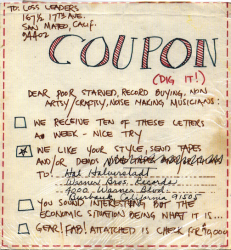 TO: LOSS LEADERS
167½ 17TH AVE.
SAN MATEO, CALIF.
94402
COUPON
(DIG IT!)
DEAR POOR STARVED, RECORD BUYING, NON
ARTSY/CRAFTY, NOISE MAKING MUSICIANS:
WE RECEIVE TEN OF THESE LETTERS
A WEEK - NICE TRY
WE LIKE YOUR STYLE, SEND TAPES
AND/OR DEMOS
TO: Hal Halverstadt
Warner Bros. Records
4000 Warner Blvd.
Burbank California 91505
YOU SOUND INTERESTING BUT THE
ECONOMIC SITUATION BEING WHAT IT IS...
GEAR! FAB! ATTATCHED IS CHECK FOR 90,000